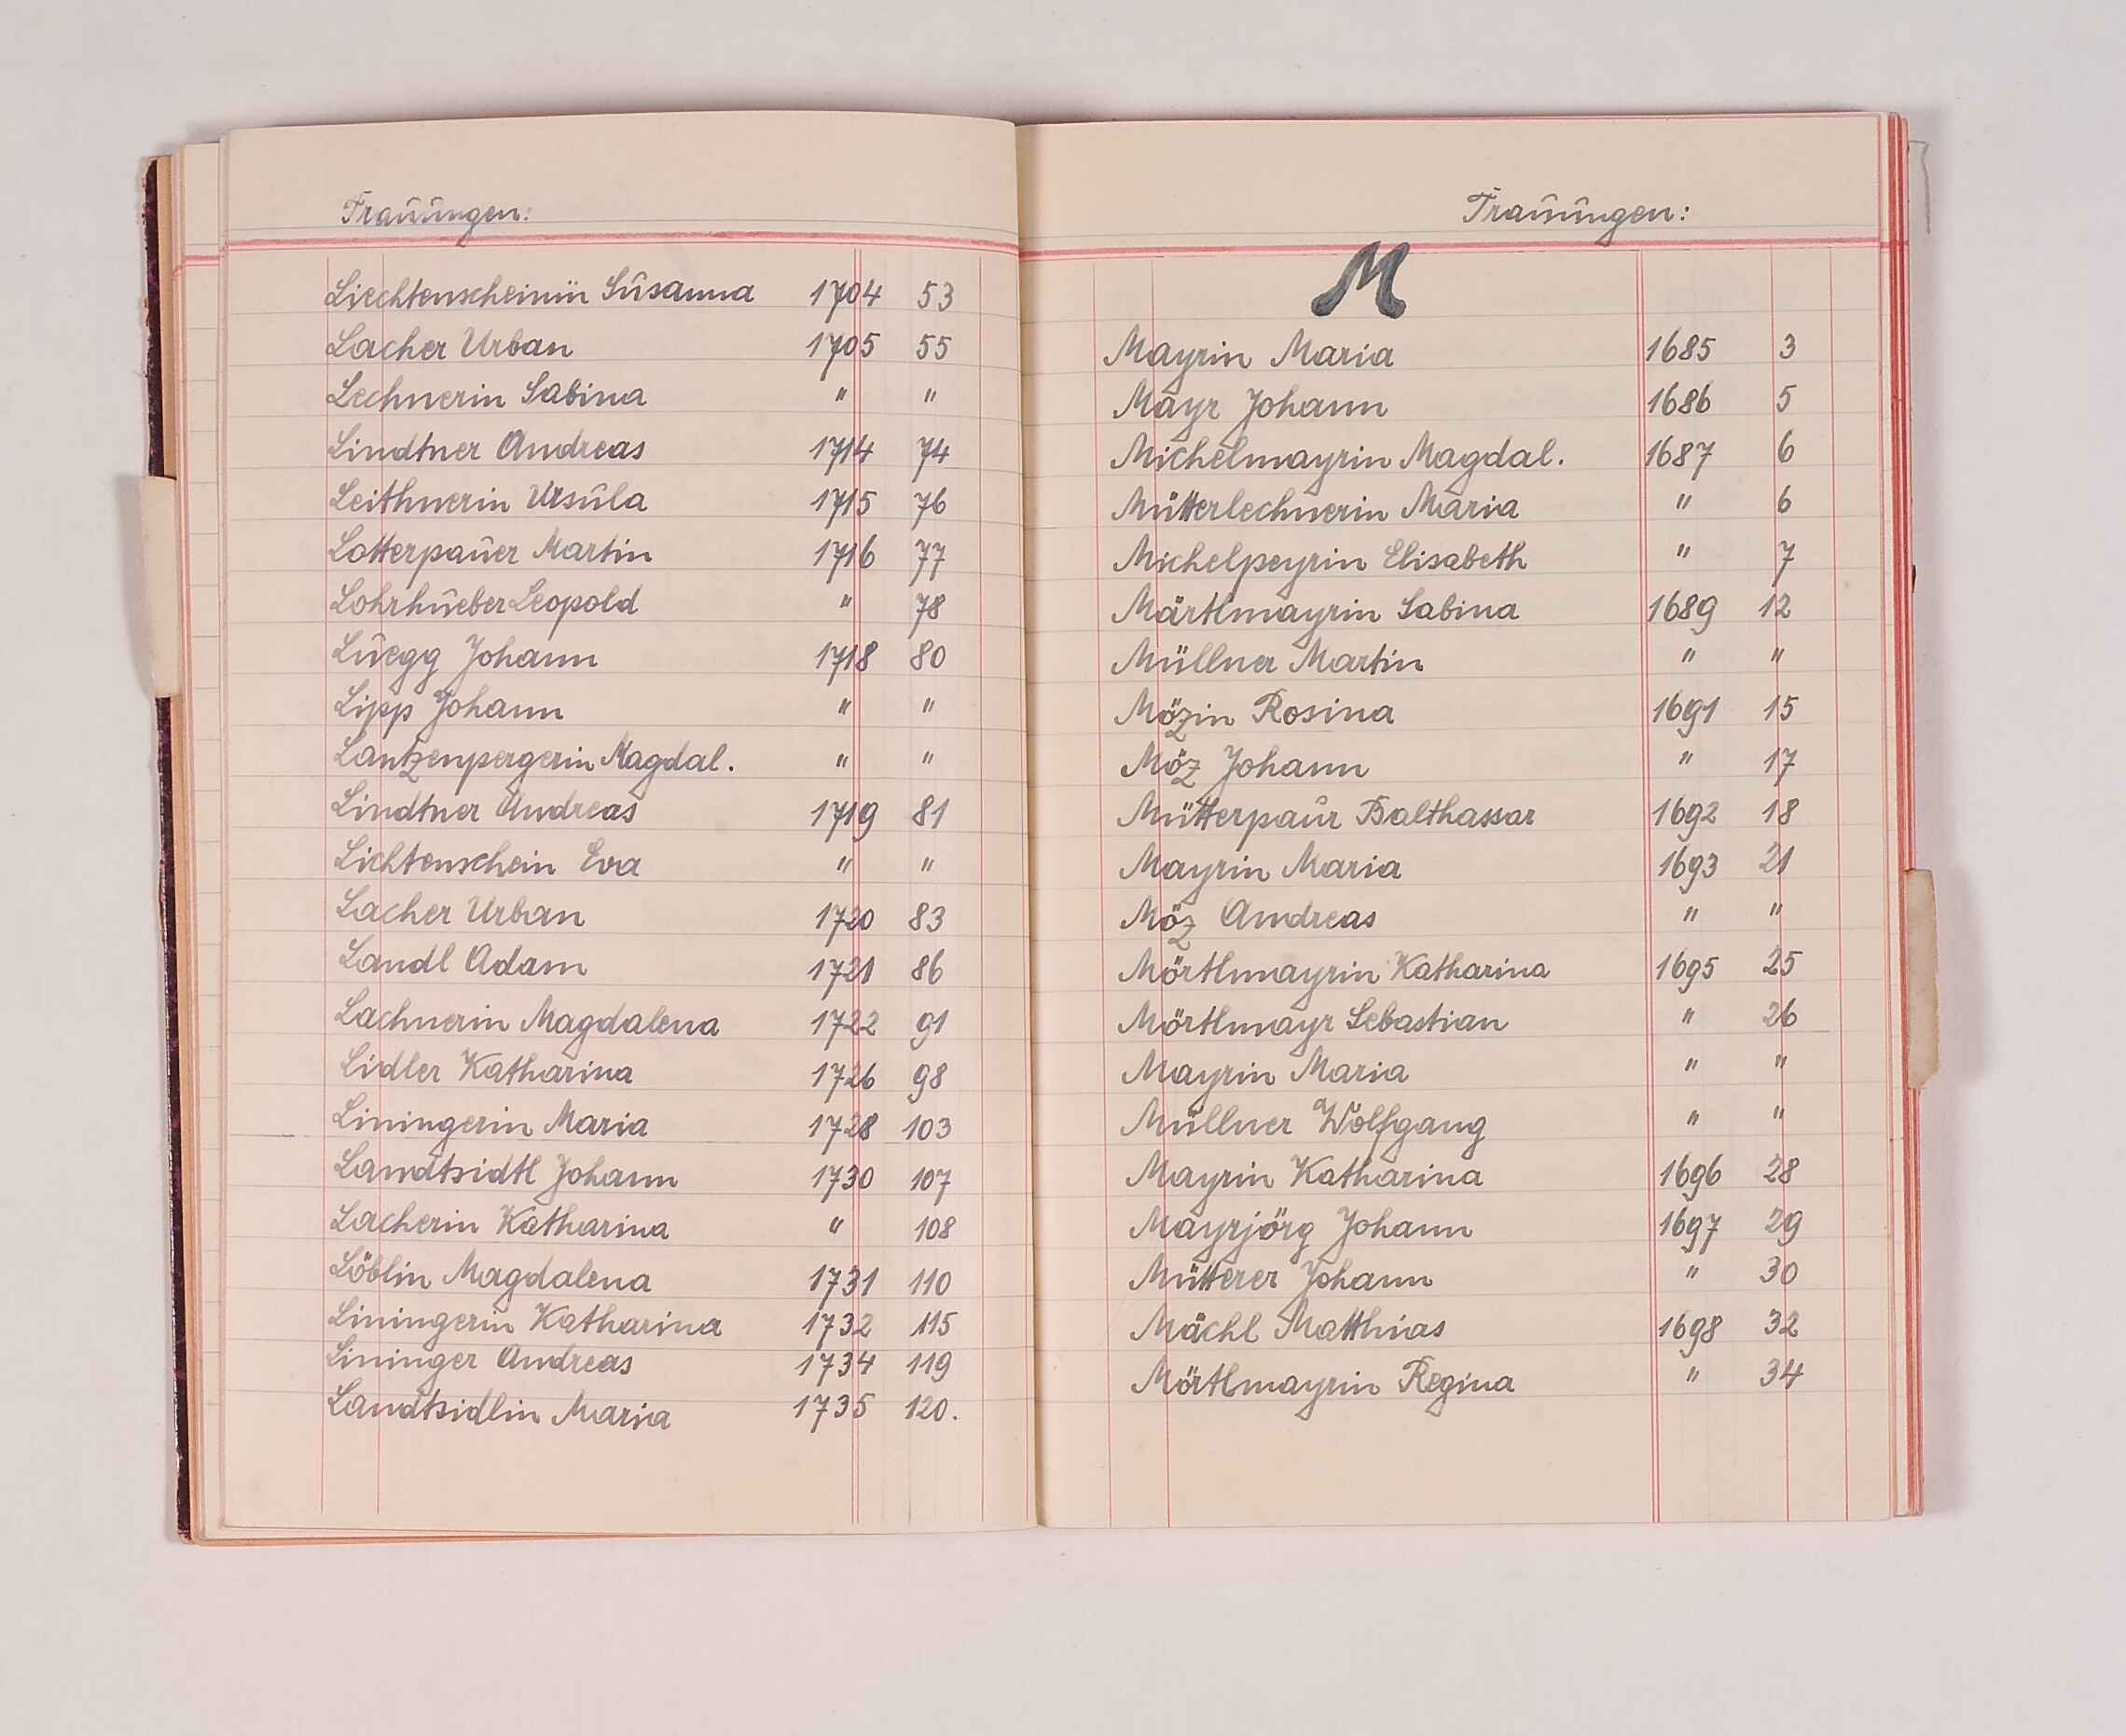 Trauungen:
Liechtenscheinin Susanna 1704 53
Lacher Urban 1705 55
Lechnerin Sabina " "
Lindtner Andreas 1714 74
Leithnerin Ursula 1715 76
Lotterpauer Martin 1716 77
Lohrhueber Leopold " 78
Luegg Johann 1718 80
Lipp Johann " "
Lantzenpergerin Magdal. " "
Lindtner Andreas 1719 81
Lichtenschein Eva " "
Lacher Urban 1720 83
Landl Adam 1721 86
Lachnerin Magdalena 1722 91
Lidler Katharina 1726 98
Liningerin Maria 1728 103
Landtsidtl Johann 1730 107
Lacherin Katharina " 108
Löblin Magdalena 1731 110
Liningerin Katharina 1732 115
Lininger Andreas 1734 119
Landtsidlin Maria 1735 120.
Trauungen:
M
Mayrin Maria 1685 3
Mayr Johann 1686 5
Michelmayrin Magdal. 1687 6
Mütterlechnerin Maria " 6
Michelpeyrin Elisabeth " 7
Märtlmayrin Sabina 1689 12
Müllner Martin " "
Mözin Rosina 1691 15
Möz Johann " 17
Mütterpaur Balthassar 1692 18
Mayrin Maria 1693 21
Möz Andreas " "
Mörtlmayrin Katharina 1695 25
Mörtlmayr Sebastian " 26
Mayrin Maria " "
Müllner Wolfgang " "
Mayrin Katharina 1696 28
Mayrjörg Johann 1697 29
Mütterer Johann " 30
Mächl Matthias 1698 32
Mörtlmayrin Regina " 34